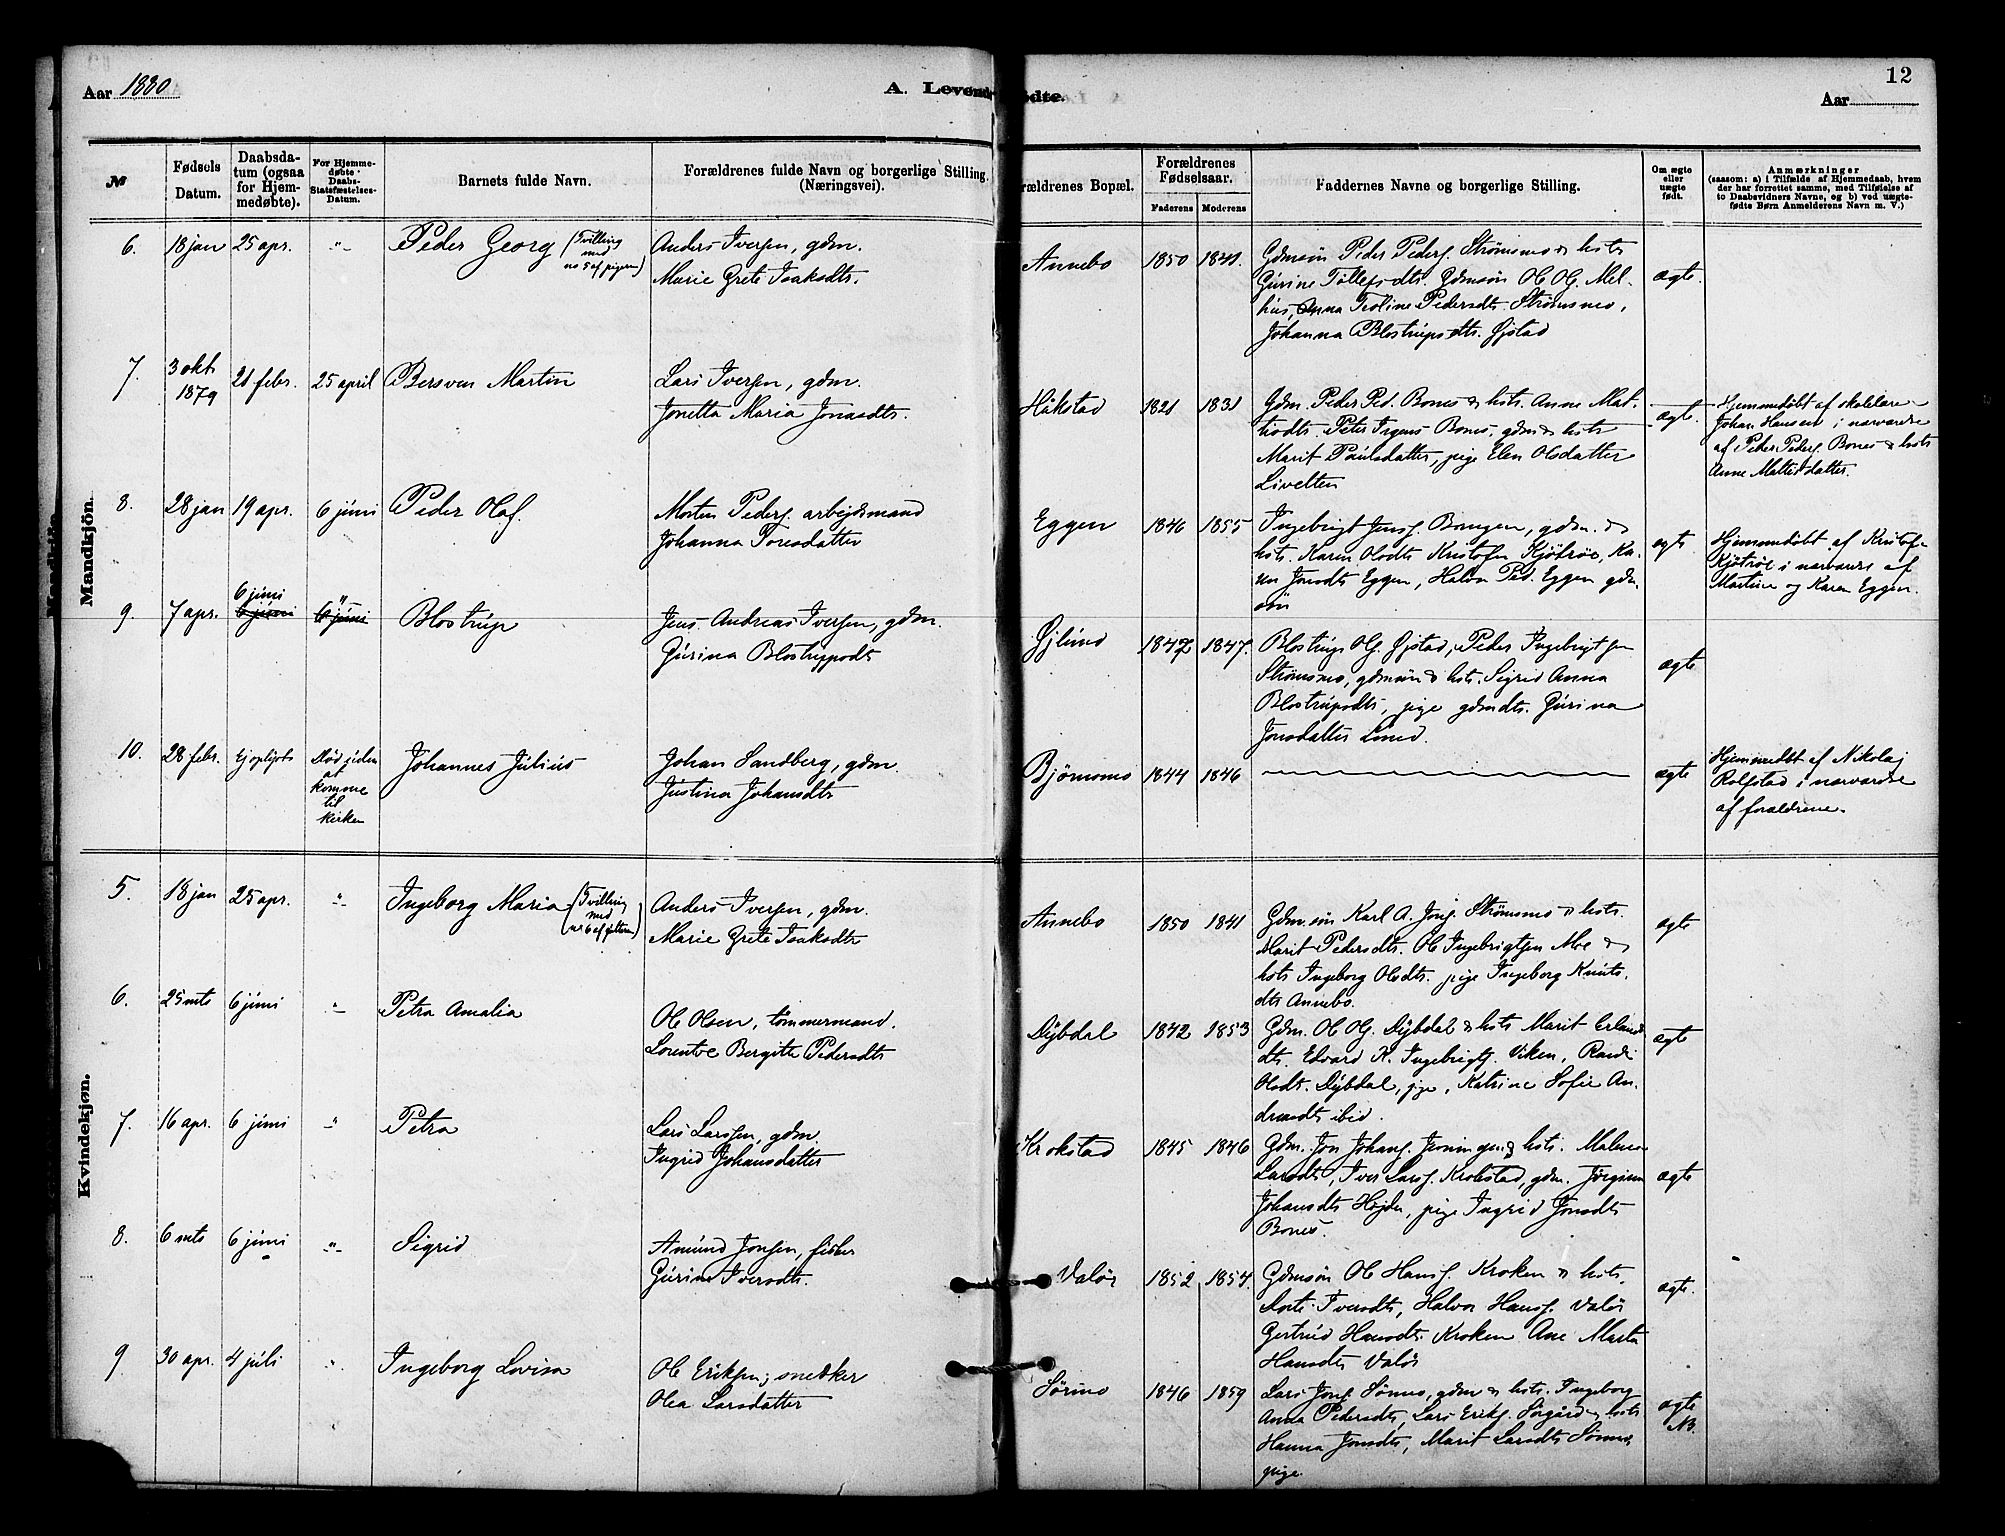 Aar 1880
A. Levendefødte.
12
Aar
№
Fødsels Datum.
Daabsdatum (ogsaa for Hjemmedøbte).
For Hjemmedøbte Daabs-Statsfæstelses-Datum.
Barnets fulde Navn.
Forældrenes fulde Navn og borgerlige Stilling (Næringsvei).
rældrenes Bopæl.
Forældrenes Fødselsaar.
Faderens
Moderens
Faddernes Navne og borgerlige Stilling.
Om ægte eller uægte født.
Anmærkninger
(saasom: a) i Tilfælde af Hjemmedaab, hvem der har forrettet samme, med Tilføielse af to Daabsvidners Navne, og b) ved uægtefødte Børn Anmelderens Navn m. V.)
Mandkjön.
6. 18 jan 25 apr. -"- Peder Georg (Tvilling med no 5 af pigern)
Anders Iversen, gdm.
Marie Grete Isaksdtr.
Annebo 1850 1841.
Gdmsön Peder Peders. Strømsmo & hstr
Gurine Tollefsdtr. Gdmsön Ol. Ol. Mel-
hus, Anna Teoline Pedersdtr. Strömsmo,
Johanna Blostrupsdtr. Gjstad
ægte.
7. 3 okt 1879 21 febr. 25 april Bersven Martin
Lars Iversen, gdm.
Jonetta Maria Jonasdtr.
Håkstad 1821 1831
Gdm. Peder Ped. Bones & hstr. Anne Mat-
tisdtr. Peter Irgens Bones, gdm & hstr
Marit Paulsdatter, pige Elen Olsdatter
Livelten
ægte.
Hjemmedøbt af skolelærer
Johan Hansen i nærværelse
af Peder Peders. Bones & hstr
Anne Mattisdatter.
8. 28 jan 19 apr. 6 juni Peder Olaf.
Morten Peders. arbejdsmand
Johanna Toresdatter
Eggen 1846 1855
Ingebrigt Jens. Bongen, gdm. &
hstr. Karen Olsdtr Kristofer Kjötröe, Ka-
ren Jonsdtr Eggen, Halvor Ped. Eggen gdm-
sön
ægte
Hjemmedøbt af Kristofer
Kjötröe i nærværelse af
Martine og Karen Eggen.
9. 7 apr. 6 juni 6 juni " 6 juni Blostrup
Jens Andreas Iversen, gdm.
Gurina Blostruppsdtr
Gjlund 1847 1847.
Blostrup Ol. Gjstad, Peder Ingebrigtsen
Strømsmo, gdmsön & hstr. Sigrid Anna
Blostrupsdtr, pige gdmdtr. Gurina
Jonsdatter Lund.
ægte
10. 28 febr. Ej oplyst Död siden at komme til kirken Johannes Julius
Johan Sandberg, gdm.
Justina Johansdtr
Bjömsmo 1844 1846
ægte
Hjemmedbt af Nikolaj
Rolfstad i nærværelse
af forældrene.
Kvindekjøn.
5. 18 jan 25 apr. " Ingeborg Maria (Tvilling med no 6 af guttern)
Anders Iversen, gdm.
Marie Grete Isaksdtr
Annebo 1850 1841
Gdmsön Karl A. Jons. Strømsmo & hstr.
Marit Pedersdtr. Ole Ingebrigtsen Moe &
hstr Ingeborg Olsdtr. pige Ingeborg Knuts-
dtr Annebo.
ægte
6. 25 mts 6 juni " Petra Amalia
Ole Olsen, tömmermand.
Lorentse Bergitte Pedersdtr
Dybdal 1842 1853
Gdm. Ol Ol. Dybdal & hstr Marit Erlands
dtr. Edvard K. Ingebrigts. Viken, Randi
Olsdt. Dybdal, pige, Katrine Sofie An-
dreasdtr ibid.
ægte
7. 16 apr. 6 juni " Petra
Lars Larssen, gdm.
Ingrid Johansdatter
Krokstad 1845 1846
Gdm. Jon Johans. Jenningen & hstr. Malena
Larsdtr, Iver Lars. Krokstad, gdm. Jörgine
Johansdtr Højden, pige Ingrid Jonsdtr
Bones.
ægte
8. 6 mts 6 juni " Sigrid
Amund Jonsen, fisker
Gurine Iversdtr.
Valör 1852 1854.
Gdmsön Ole Hans. Kroken & hstr.
Dorte Iversdtr, Halvor Hans. Valör
Gertrud Hansdtr. Kroken Ane Marta
Hansdtr Valör
ægte.
9 30 apr. 4 juli " Ingeborg Lovisa
Ole Eriksen, snedker
Olea Larsdatter
Sörmo 1846 1859
Lars Jons. Sörmo, gdm & hstr. Ingeborg
Anna Pedersdtr, Lars Eriks. Sörgård & hstr
Hanna Jonsdtr, Marit Larsdtr Sörmo,
pige
ægte
NB.